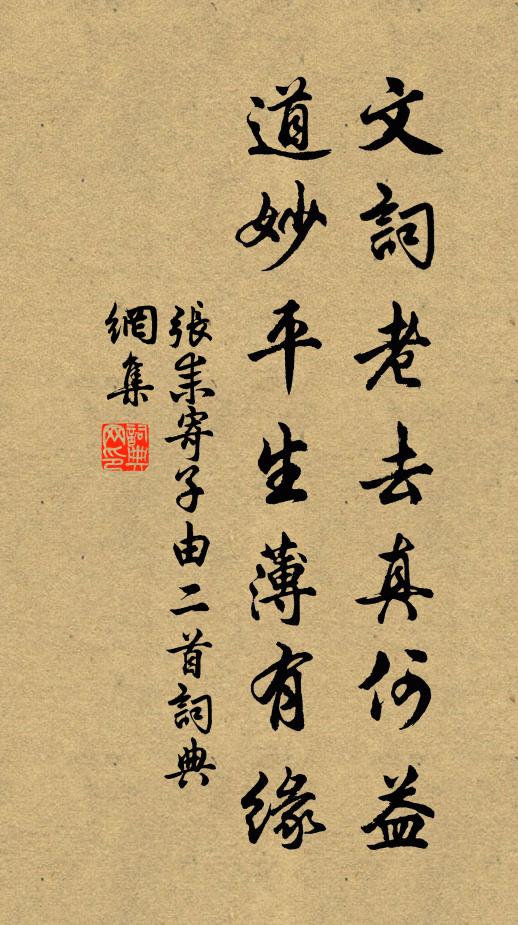 文詞老去真何益
道妙平生薄有緣
張耒寄子由二首詞典
網集
詞典
网印